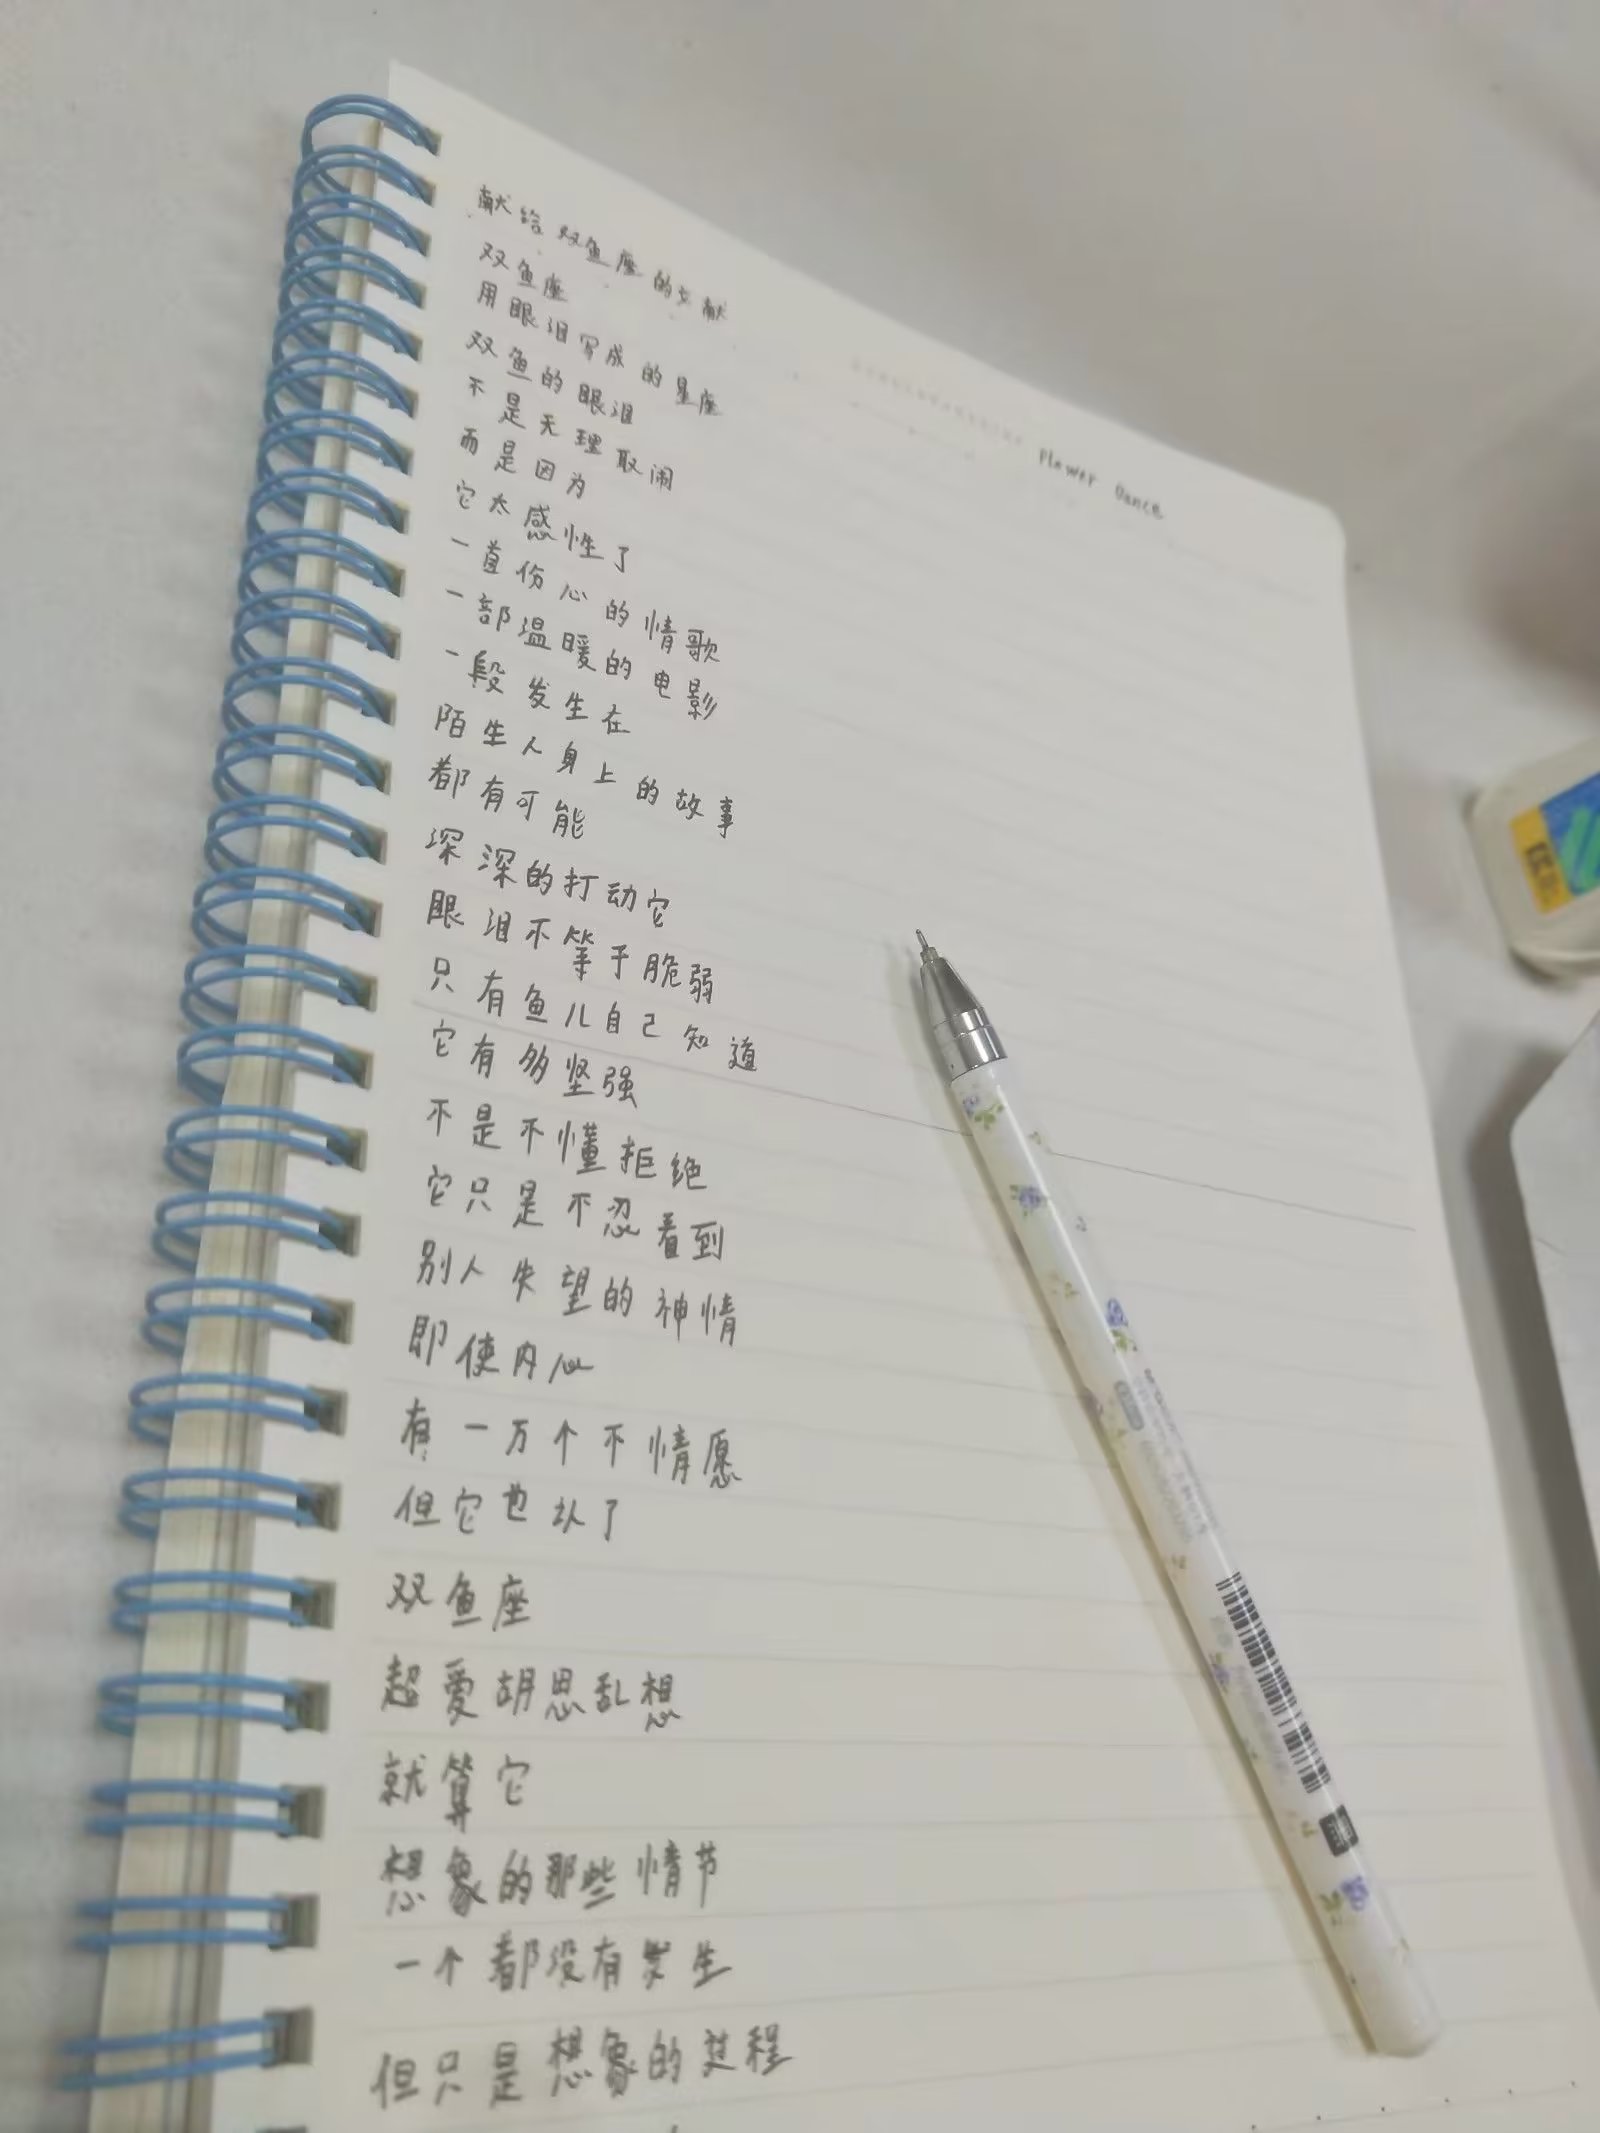 献给双鱼座的文献
Flower Dance
双鱼座
用眼泪写成的星座
双鱼的眼泪
不是无理取闹
而是因为
它太感性了
一首伤心的情歌
一部温暖的电影
一段发生在
陌生人身上的故事
都有可能
深深的打动它
眼泪不等于脆弱
只有鱼儿自己知道
它有多坚强
不是不懂拒绝
它只是不忍看到
别人失望的神情
即使内心
有一万个不情愿
但它也认了
双鱼座
超爱胡思乱想
就算它
想象的那些情节
一个都没有发生
但只是想象的过程